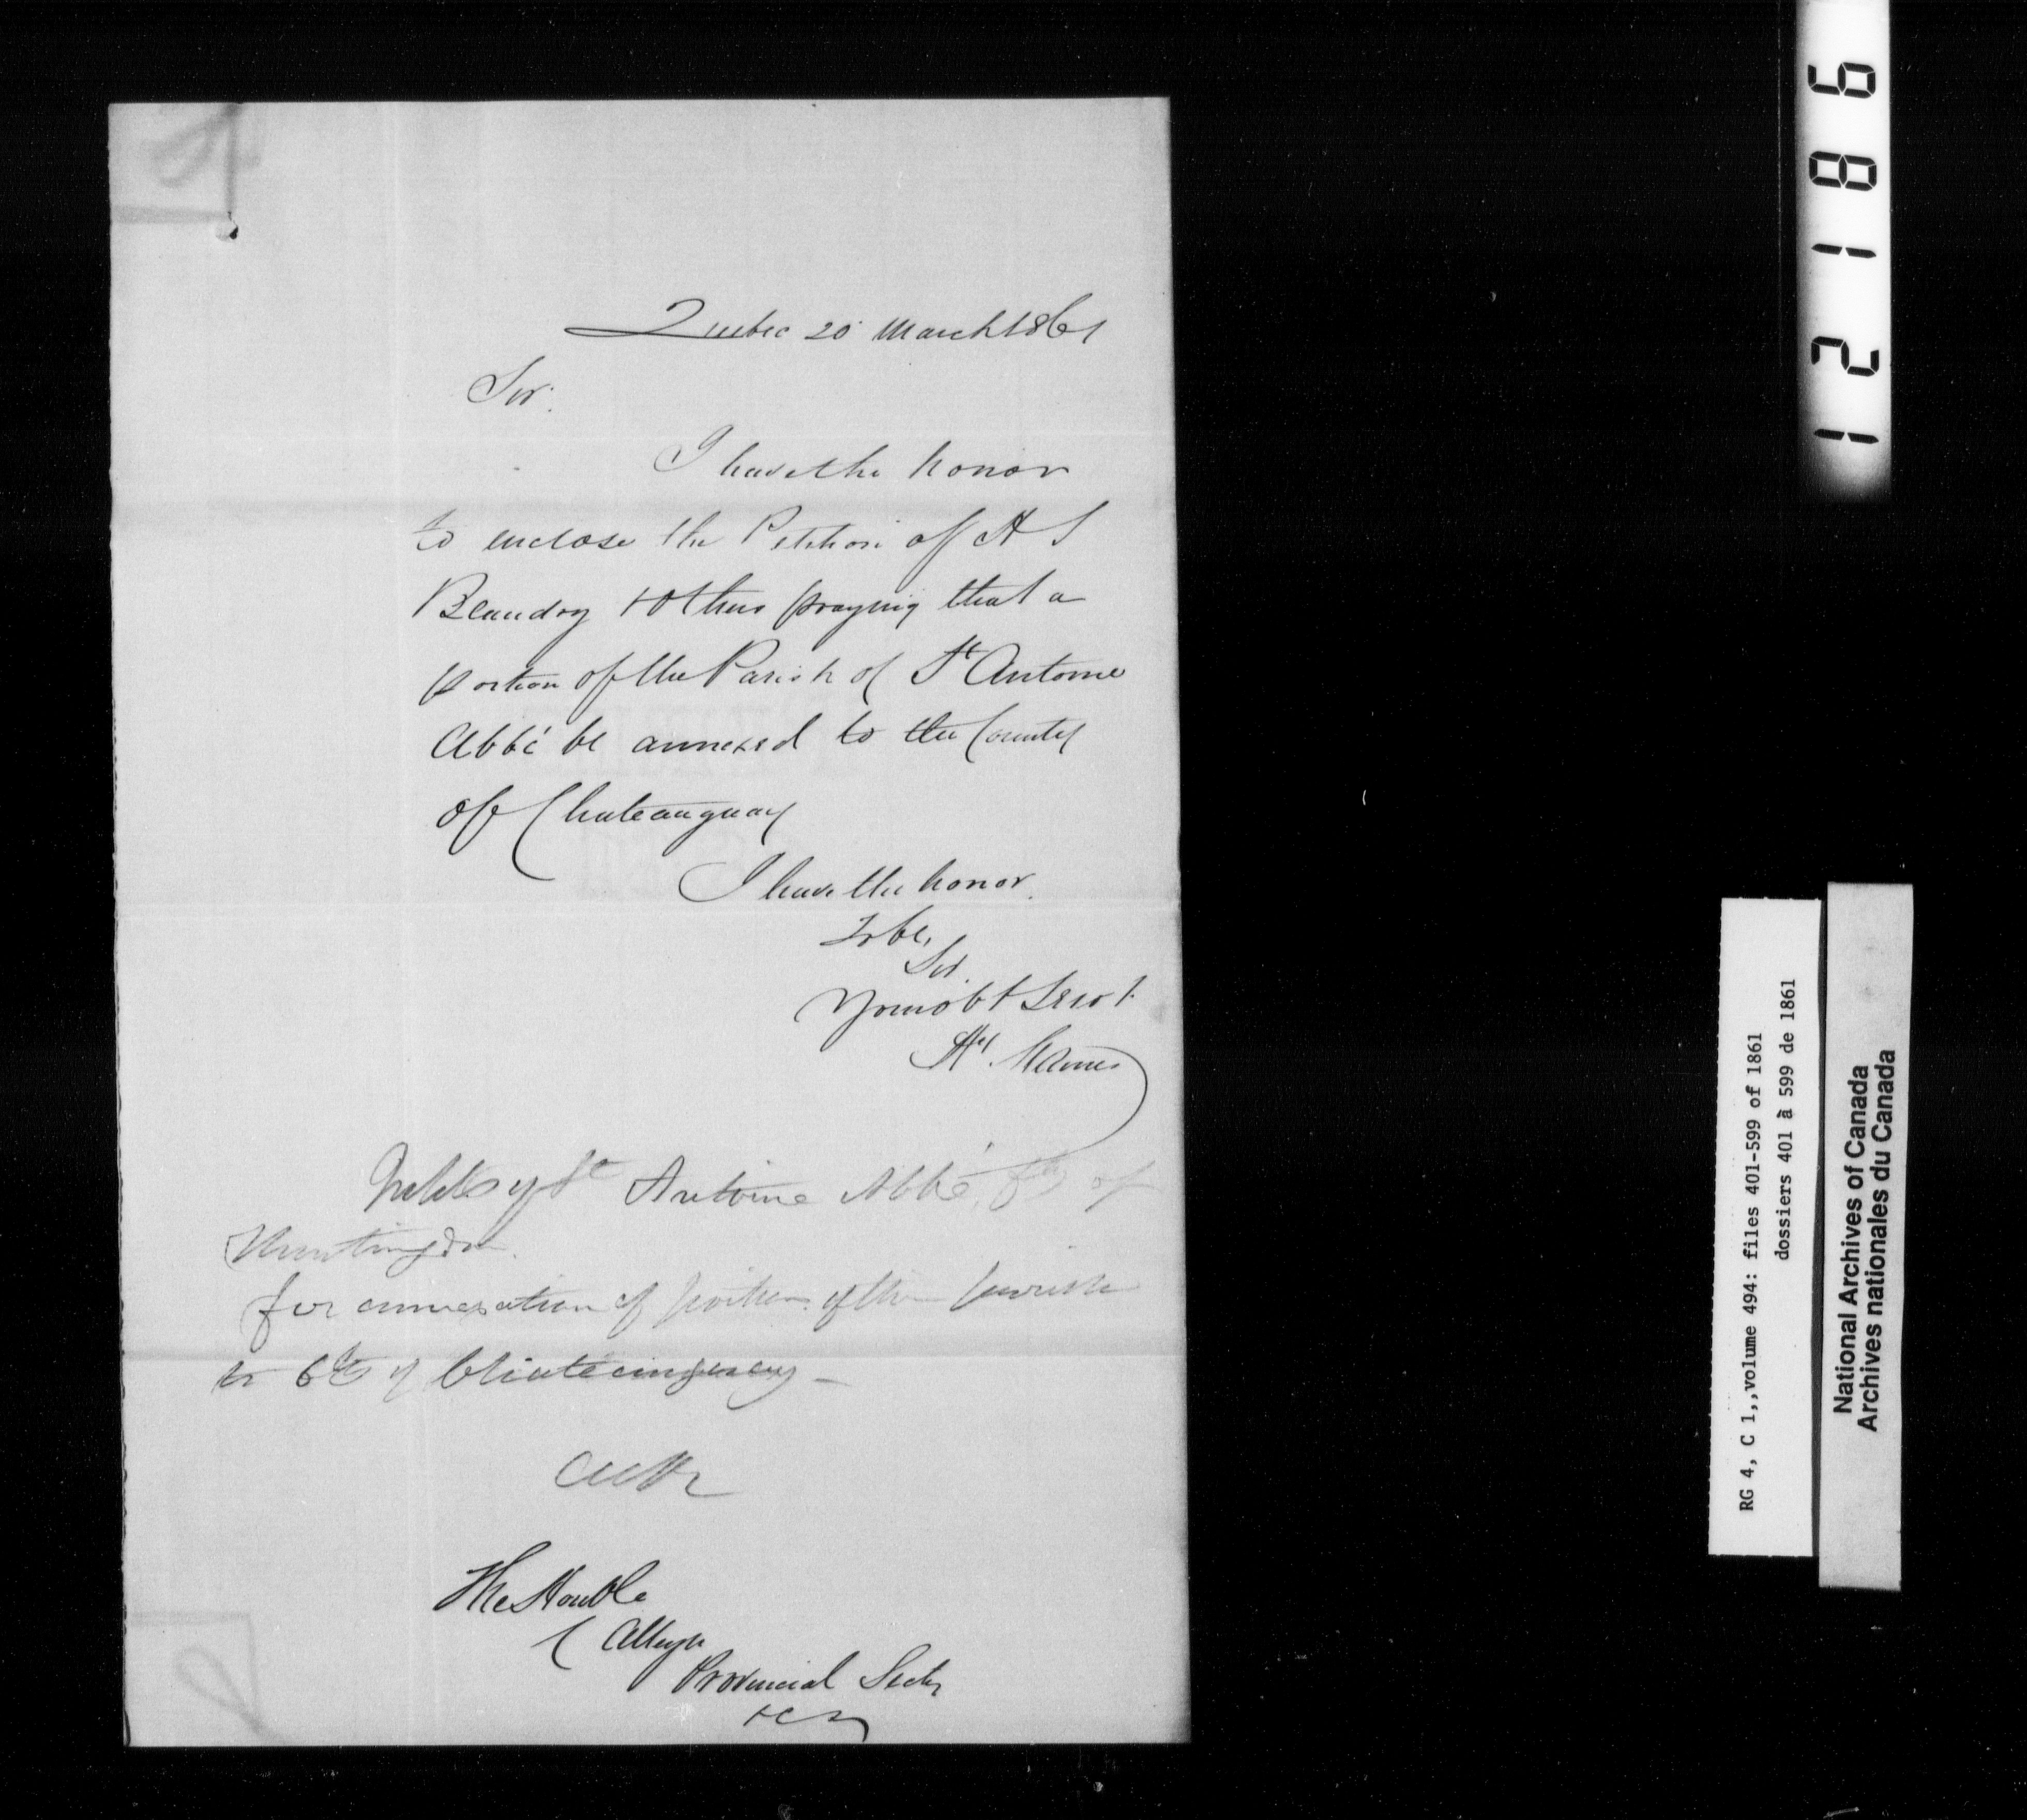 Quebec 20 March 1861
Sir.
I have the honor
to enclose the Petition of H S
Beaudry & others praying that a
portion of the Parish of St Antoine
Abbé be annexed to the County
of Chateauguay
I have the honor
To be,
Sir.
Your obt Servt
Inhabts of St Antoine Abbé, Cty of
Huntingdon.
for annexation of portion of their parish
to Cty of Chateauguay —
The Honble
C Alleyn
Provincial Secty
&c &c
12186
RG 4, C 1,,volume 494: files 401-599 of 1861
dossiers 401 à 599 de 1861
National Archives of Canada
Archives nationales du Canada